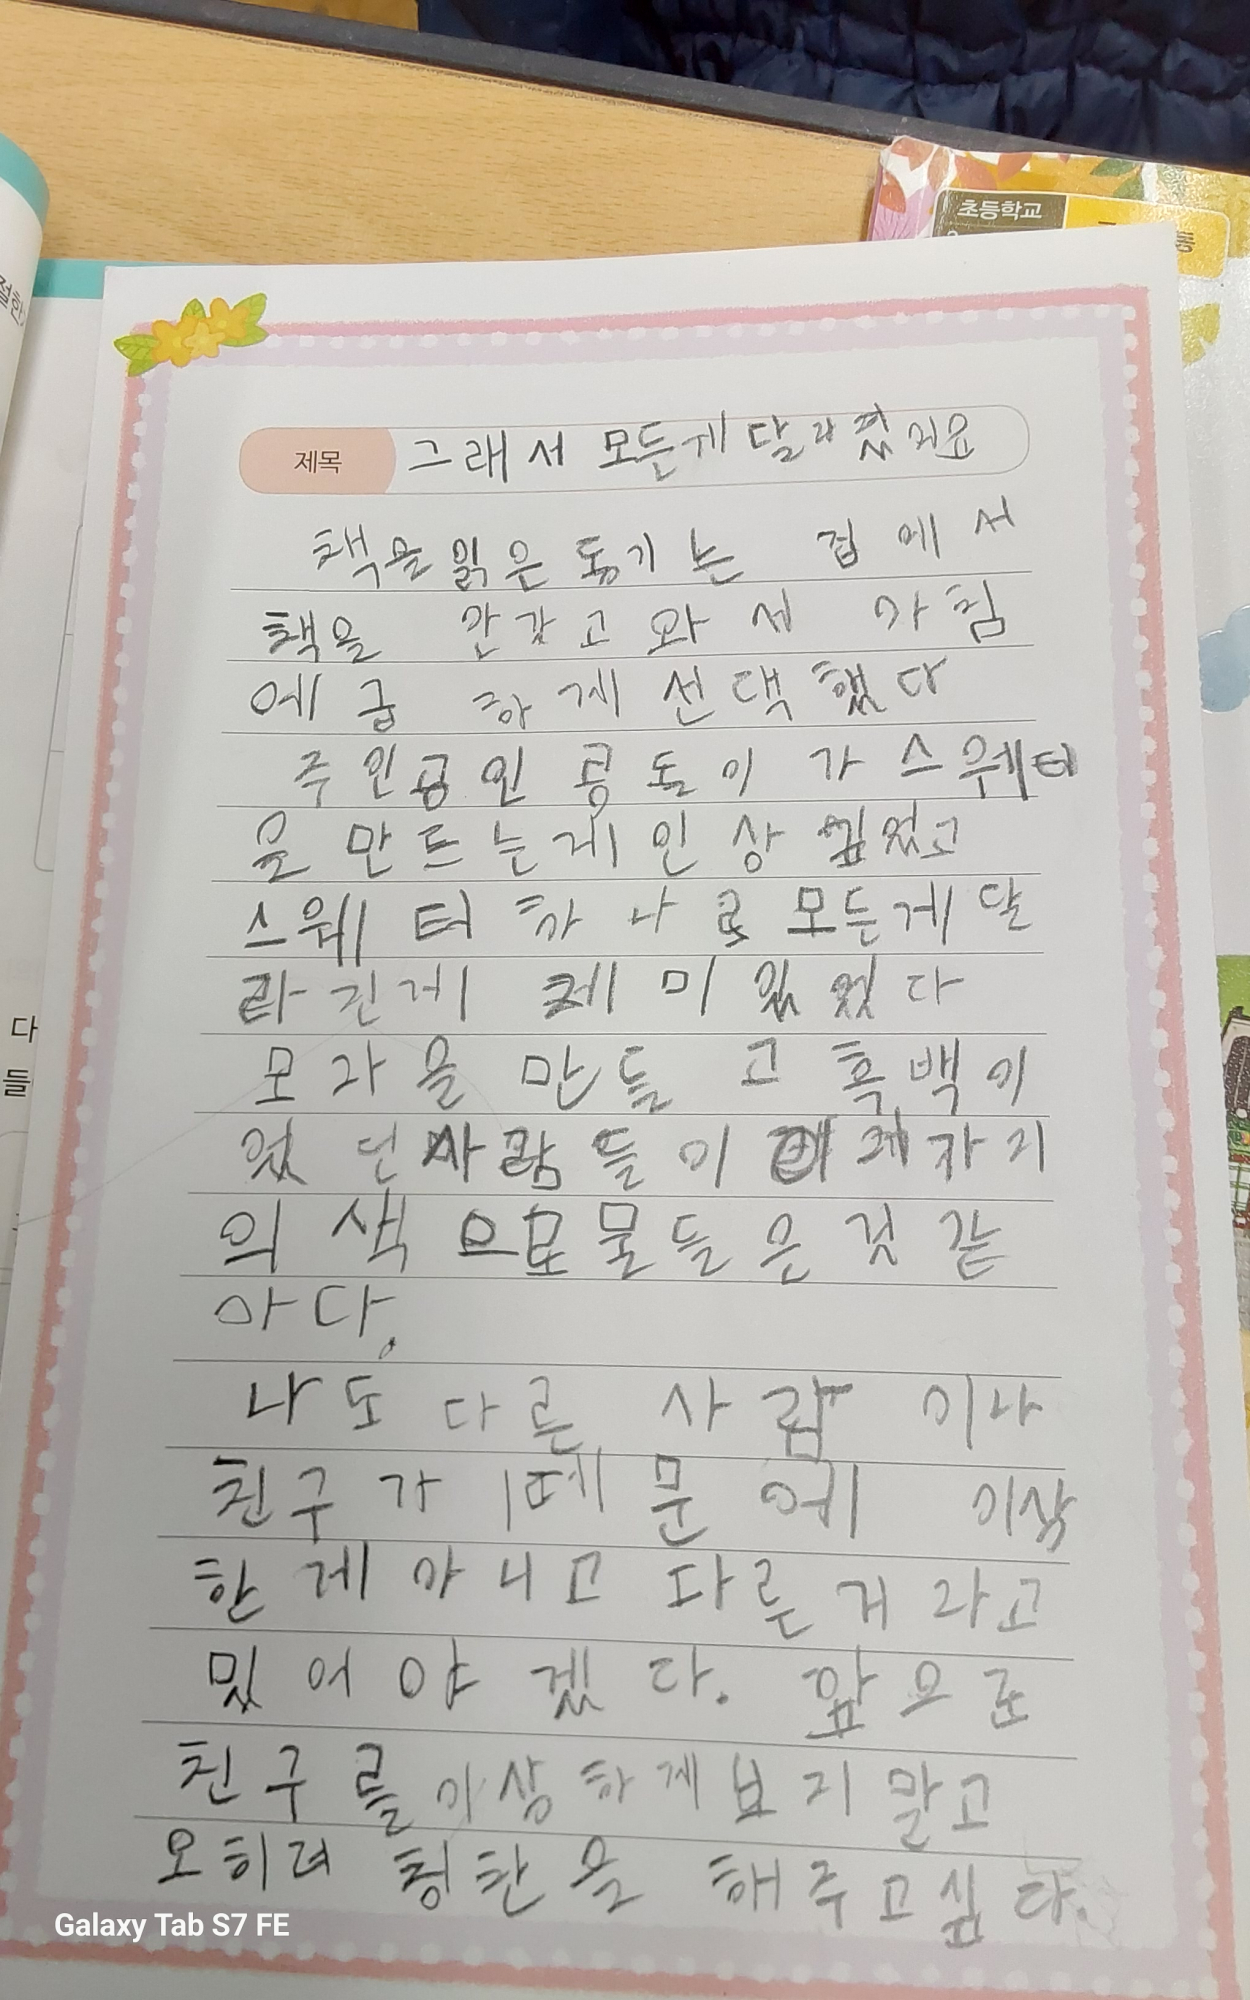 초등학교
절한
다
들
제목 그래서 모든게 달라졌지요
책을 읽은 동기는 집에서
책을 안갖고 와서 아침
에 급하게 선택했다
주인공인 콩돌이가 스웨터
을 만드는게 인상 깊었고
스웨터 하나로 모든게 달
라진게 제미있었다
모자을 만들고 흑백이
었던 사람들이 자기
의 색으로 물들은것 같
아다.
나도 다른 사람이나
친구가 떼문에 이상
한게 아니고 다른거라고
밌어야겠다. 앞으로
친구를 이상하게 보지말고
오히려 칭찬을 해주고싶다.
Galaxy Tab S7 FE